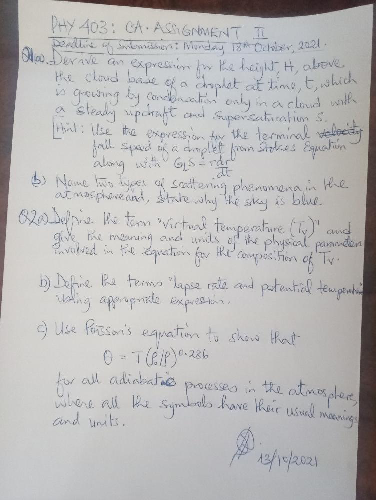 PHY 403: CA. ASSIGNMENT II
Deadline of submission: Monday 18th October, 2021.
Q1(a) Derive an expression for the height, H, above
the cloud base of a droplet at time, t, which
is growing by condensation only in a cloud with
a steady updraft and supersaturation s.
[Hint: Use the expression for the terminal velocity
fall speed of a droplet from Stokes Equation
along with G₁S = rdr/dt
b) Name two types of scattering phenomena in the
atmosphere and state why the sky is blue.
Q2(a) Define the term "virtual temperature (Tv)" and
give the meaning and units of the physical parameters
involved in the equation for the composition of Tv.
b) Define the terms "lapse rate and potential temperature
using appropriate expression.
c) Use Poisson's equation to show that
θ = T(P₀/P)^0.286
for all adiabatic processes in the atmosphere,
where all the symbols have their usual meanings
and units.
13/10/2021